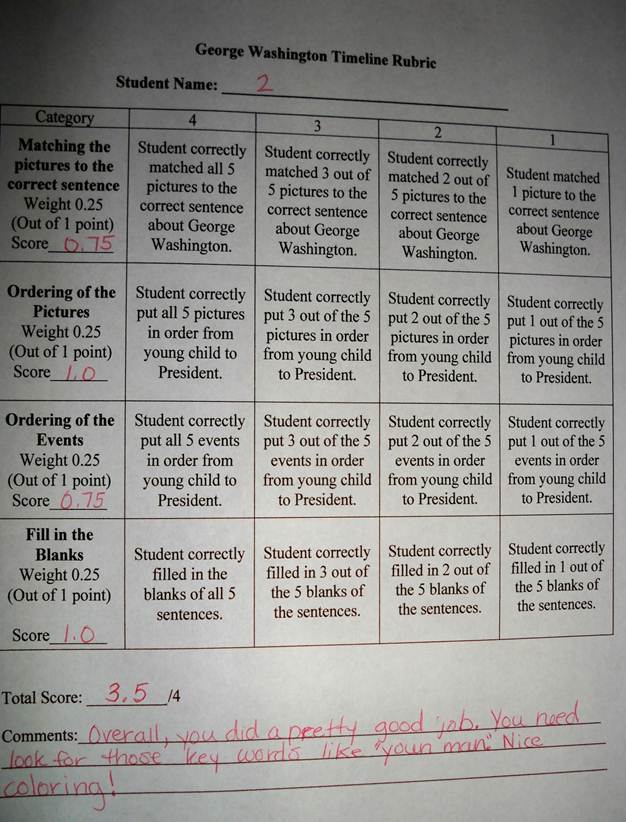 George Washington Timeline Rubric
Student Name: 2
Category 4 3 2 1
Matching the
pictures to the
correct sentence
Weight 0.25
(Out of 1 point)
Score 0.75
Student correctly
matched all 5
pictures to the
correct sentence
about George
Washington.
Student correctly
matched 3 out of
5 pictures to the
correct sentence
about George
Washington.
Student correctly
matched 2 out of
5 pictures to the
correct sentence
about George
Washington.
Student matched
1 picture to the
correct sentence
about George
Washington.
Ordering of the
Pictures
Weight 0.25
(Out of 1 point)
Score 1.0
Student correctly
put all 5 pictures
in order from
young child to
President.
Student correctly
put 3 out of the 5
pictures in order
from young child
to President.
Student correctly
put 2 out of the 5
pictures in order
from young child
to President.
Student correctly
put 1 out of the 5
pictures in order
from young child
to President.
Ordering of the
Events
Weight 0.25
(Out of 1 point)
Score 0.75
Student correctly
put all 5 events
in order from
young child to
President.
Student correctly
put 3 out of the 5
events in order
from young child
to President.
Student correctly
put 2 out of the 5
events in order
from young child
to President.
Student correctly
put 1 out of the 5
events in order
from young child
to President.
Fill in the
Blanks
Weight 0.25
(Out of 1 point)
Score 1.0
Student correctly
filled in the
blanks of all 5
sentences.
Student correctly
filled in 3 out of
the 5 blanks of
the sentences.
Student correctly
filled in 2 out of
the 5 blanks of
the sentences.
Student correctly
filled in 1 out of
the 5 blanks of
the sentences.
Total Score: 3.5 /4
Comments: Overall, you did a preetty good job. You need
look for those key words like "youn man." Nice
coloring!